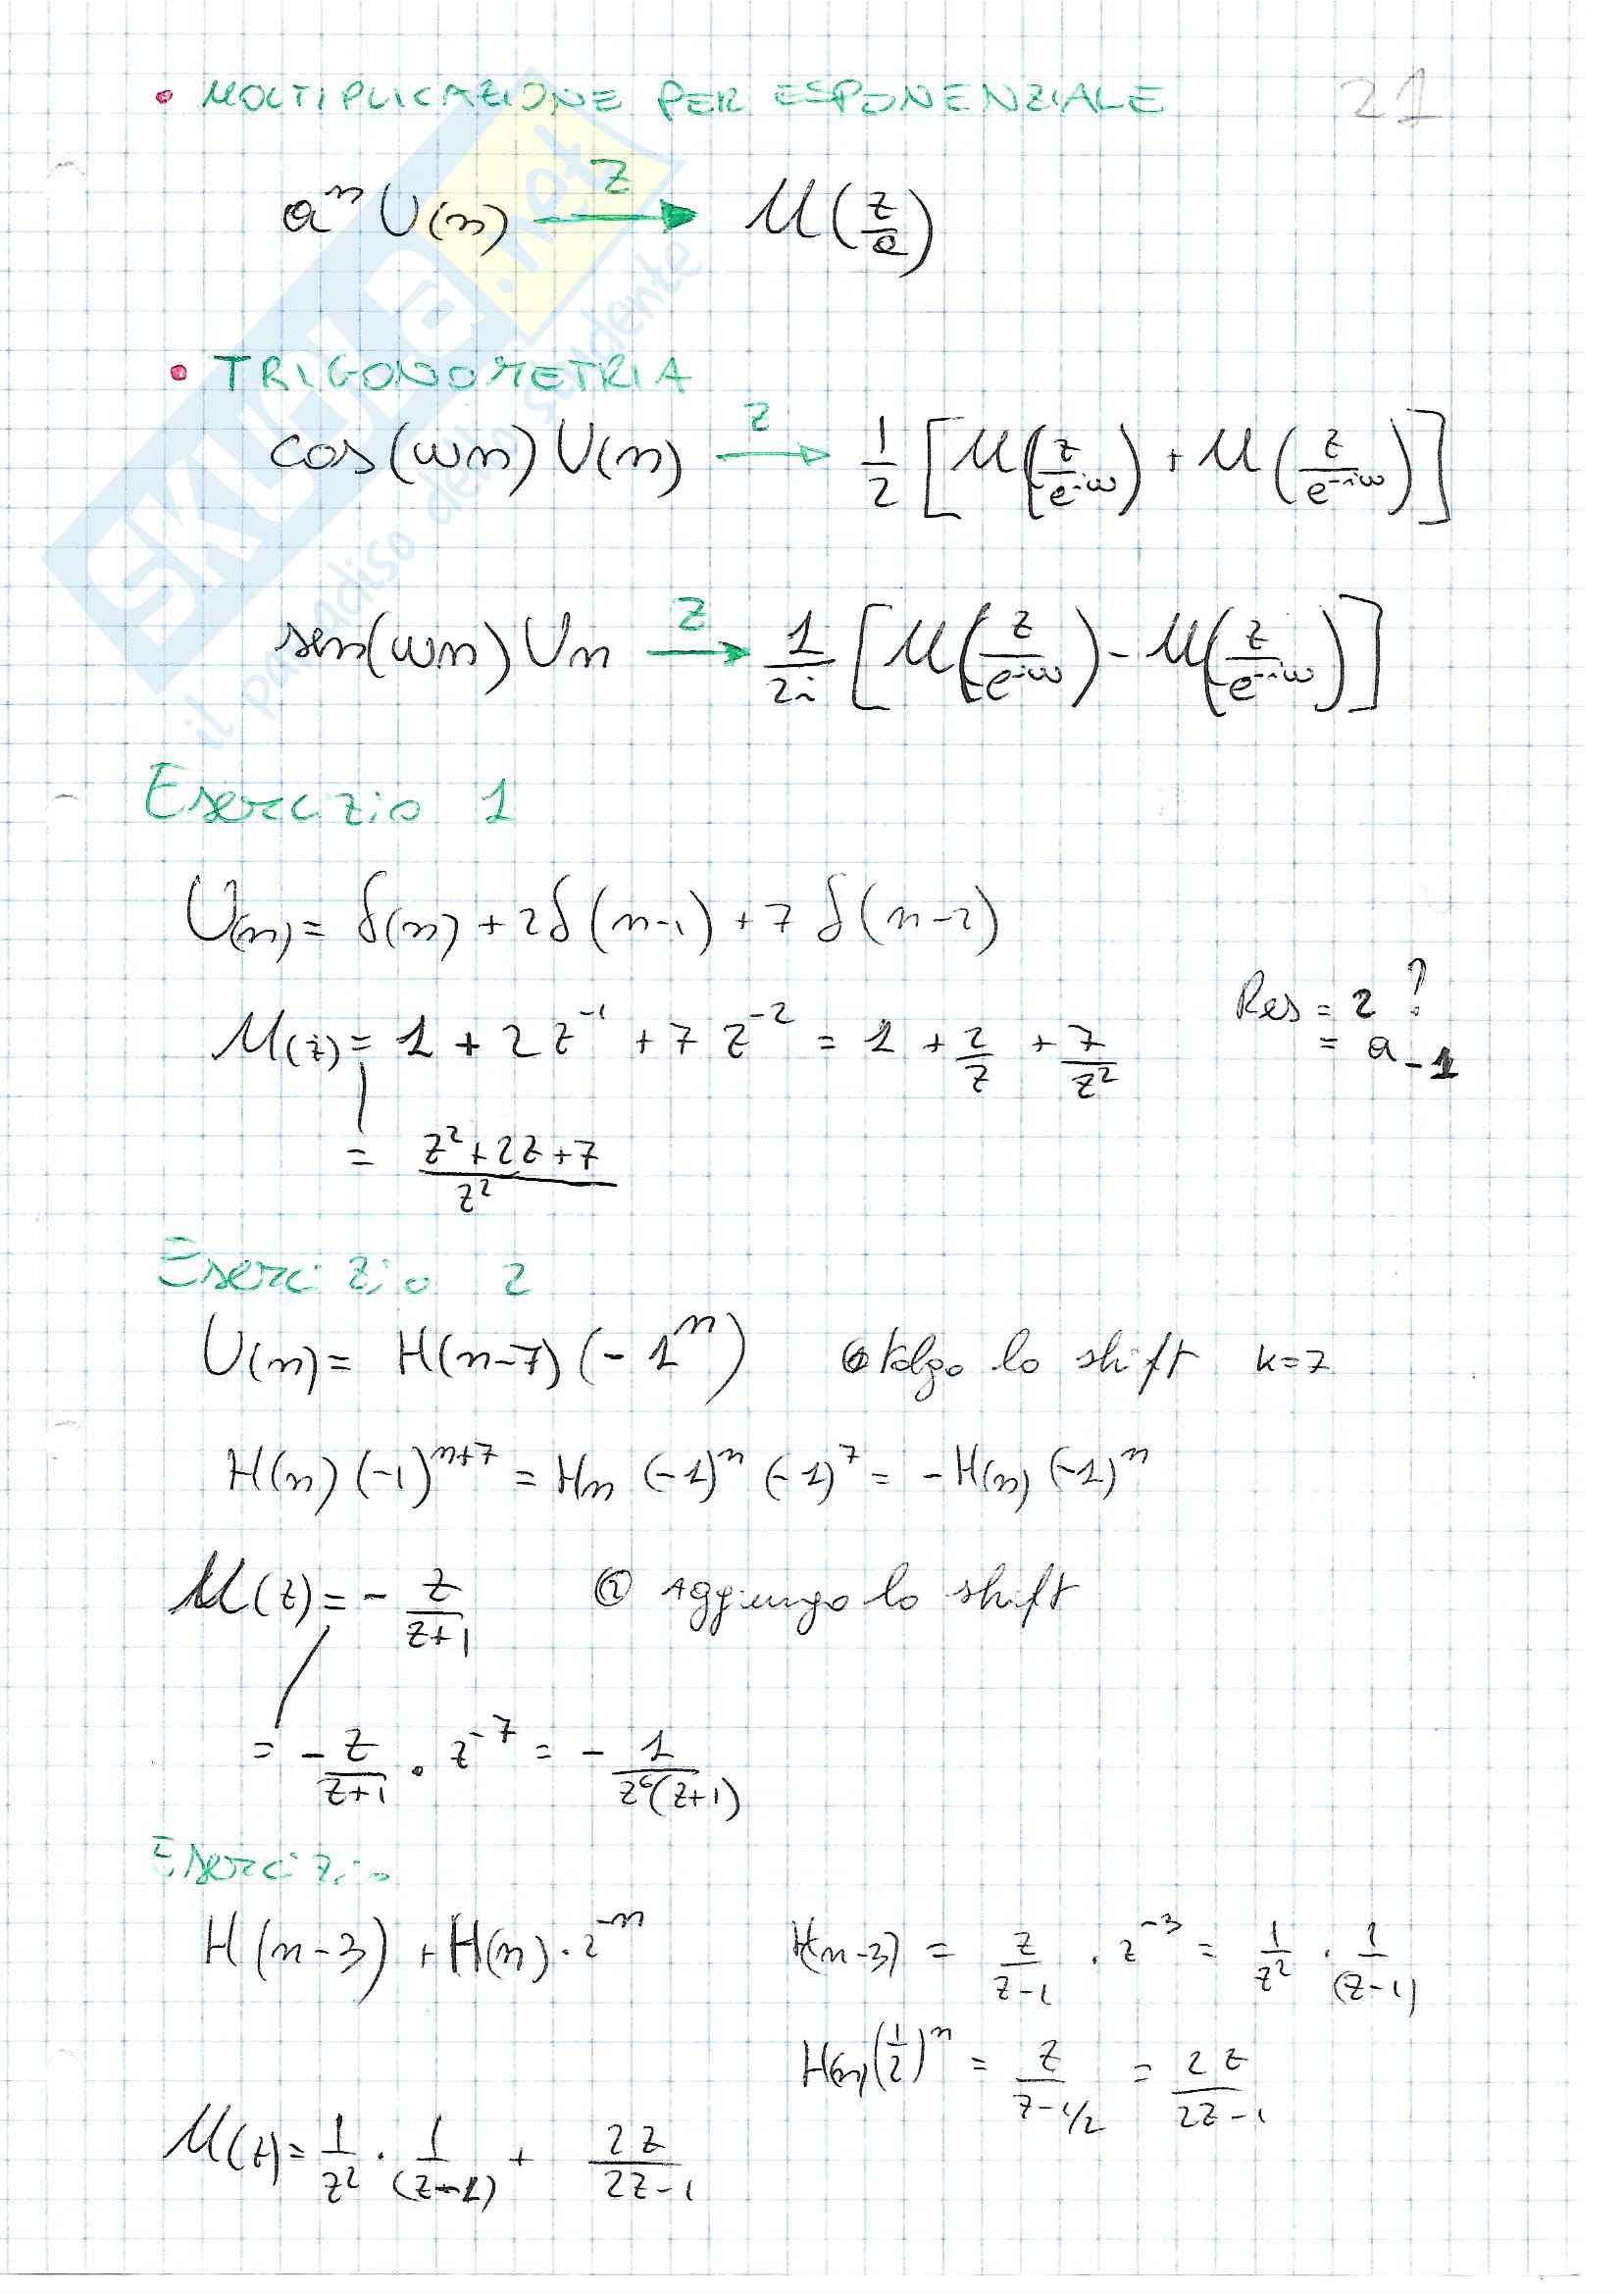 • MOLTIPLICAZIONE PER ESPONENZIALE 21
aⁿ U(n) —Z→ U(z/a)
• TRIGONOMETRIA
cos(ωn) U(n) —Z→ 1/2 [U(z/e^-iω) + U(z/e^-iω)]
sen(ωn) Un —Z→ 1/2i [U(z/e^-iω) - U(z/e^-iω)]
Esercizio 1
U(n) = δ(n) + 2δ(n-1) + 7δ(n-2)
U(z) = 1 + 2z^-1 + 7z^-2 = 1 + 2/z + 7/z²
Res = 2 ?
= a_-1
= (z²+2z+7)/z²
Esercizio 2
U(n) = H(n-7) (-1ⁿ) ① tolgo lo shift k=7
H(n) (-1)^n+7 = Hn (-1)ⁿ (-1)⁷ = -H(n) (-1)ⁿ
U(z) = - z/(z+1) ② Aggiungo lo shift
= - z/(z+1) · z^-7 = - 1/(z⁶(z+1))
Esercizio
H(n-3) + H(n) · 2^-n
H(n-3) = z/(z-1) · z^-3 = 1/z² · 1/(z-1)
H(n)(1/2)ⁿ = z/(z-1/2) = 2z/(2z-1)
U(z) = 1/z² · 1/(z-1) + 2z/(2z-1)
SKUOLA.net
il paradiso dello studente